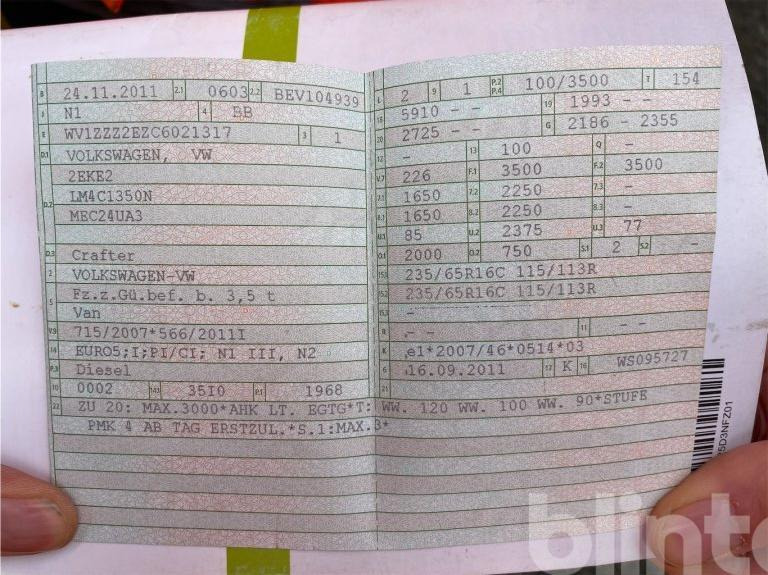 B 24.11.2011 2.1 0603 2.2 BEV104939
J N1 4 BB
E WV1ZZZ2EZC6021317 3 1
D.1 VOLKSWAGEN, VW
2EKE2
D.2 LM4C1350N
MEC24UA3
D.3 Crafter
2 VOLKSWAGEN-VW
5 Fz.z.Gü.bef. b. 3,5 t
Van
V.9 715/2007*566/2011I
14 EURO5;I;PI/CI; N1 III, N2
P.3 Diesel
10 0002 14.1 35I0 P.1 1968
L 2 9 1 P.2 P.4 100/3500 T 154
18 5910 - - 19 1993 - -
20 2725 - - G 2186 - 2355
12 - 13 100 Q -
V.7 226 F.1 3500 F.2 3500
7.1 1650 7.2 2250 7.3 -
8.1 1650 8.2 2250 8.3 -
U.1 85 U.2 2375 U.3 77
O.1 2000 O.2 750 S.1 2 S.2 -
15.1 235/65R16C 115/113R
15.2 235/65R16C 115/113R
15.3 -
R - - 11 - -
K e1*2007/46*0514*03
6 16.09.2011 17 K 16 WS095727
21
22 ZU 20: MAX.3000*AHK LT. EGTG*T: WW. 120 WW. 100 WW. 90*STUFE
PMK 4 AB TAG ERSTZUL.*S.1:MAX.3*
5D3NFZ01
blinto